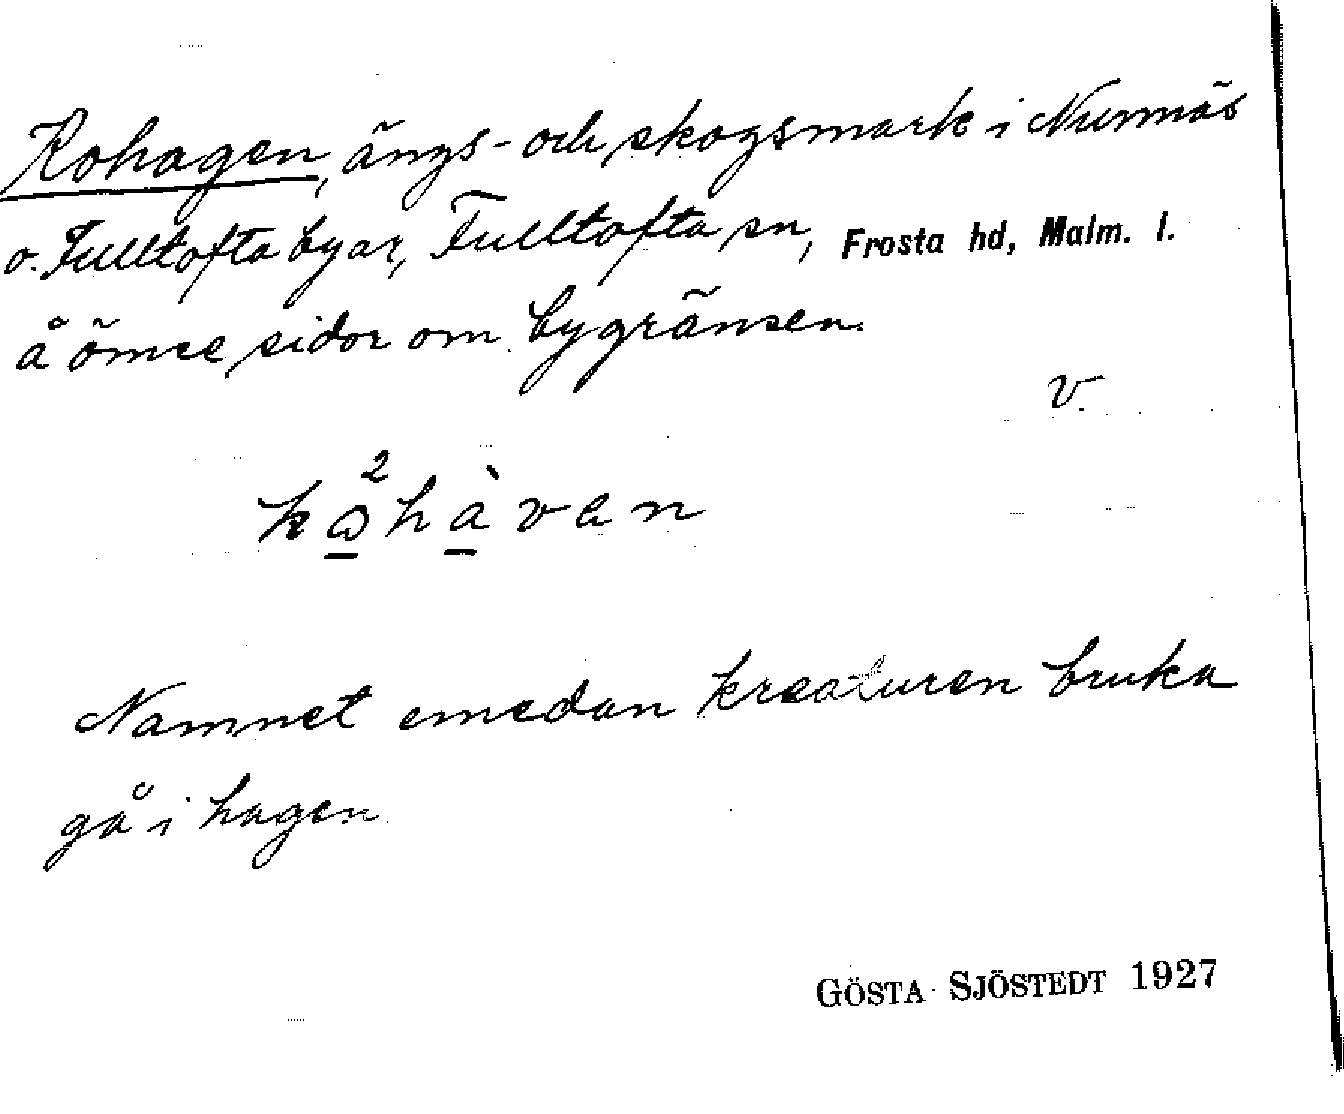 Kohagen, ängs- och skogsmark i Nunnäs
o. Fulltofta byar, Fulltofta sn, Frosta hd, Malm. l.
å ömse sidor om bygränsen.
v.
kω²hàvan
Namnet emedan kreaturen bruka
gå i hagen.
GÖSTA SJÖSTEDT 1927